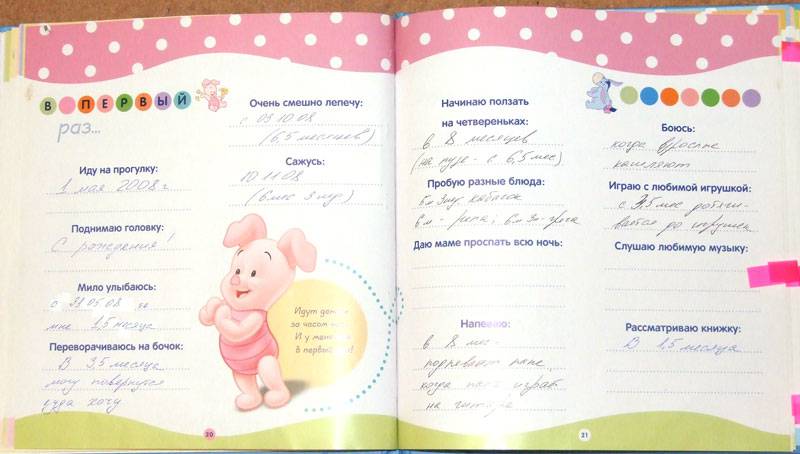 В ПЕРВЫЙ
раз...
Иду на прогулку:
1 мая 2008 г
Поднимаю головку:
С рождения!
Мило улыбаюсь:
мне 1,5 месяца
Переворачиваюсь на бочок:
В 3,5 месяца
могу повернуться
куда хочу
Очень смешно лепечу:
с 03 10 08
(6,5 месяцев)
Сажусь:
10 11 08
Идут
за часом
И у
в первый
20
Начинаю ползать
на четвереньках:
в 8 месяцев
(на пузе - с 6,5 мес)
Пробую разные блюда:
кабачок
Даю маме проспать всю ночь:
Напеваю:
в 8 мес
подпевает папе
когда папа играет
на гитаре
Боюсь:
когда взрослые
кашляют
Играю с любимой игрушкой:
с 3,5 мес дотяги-
вается до игрушек
Слушаю любимую музыку:
Рассматриваю книжку:
В 1,5 месяца
21